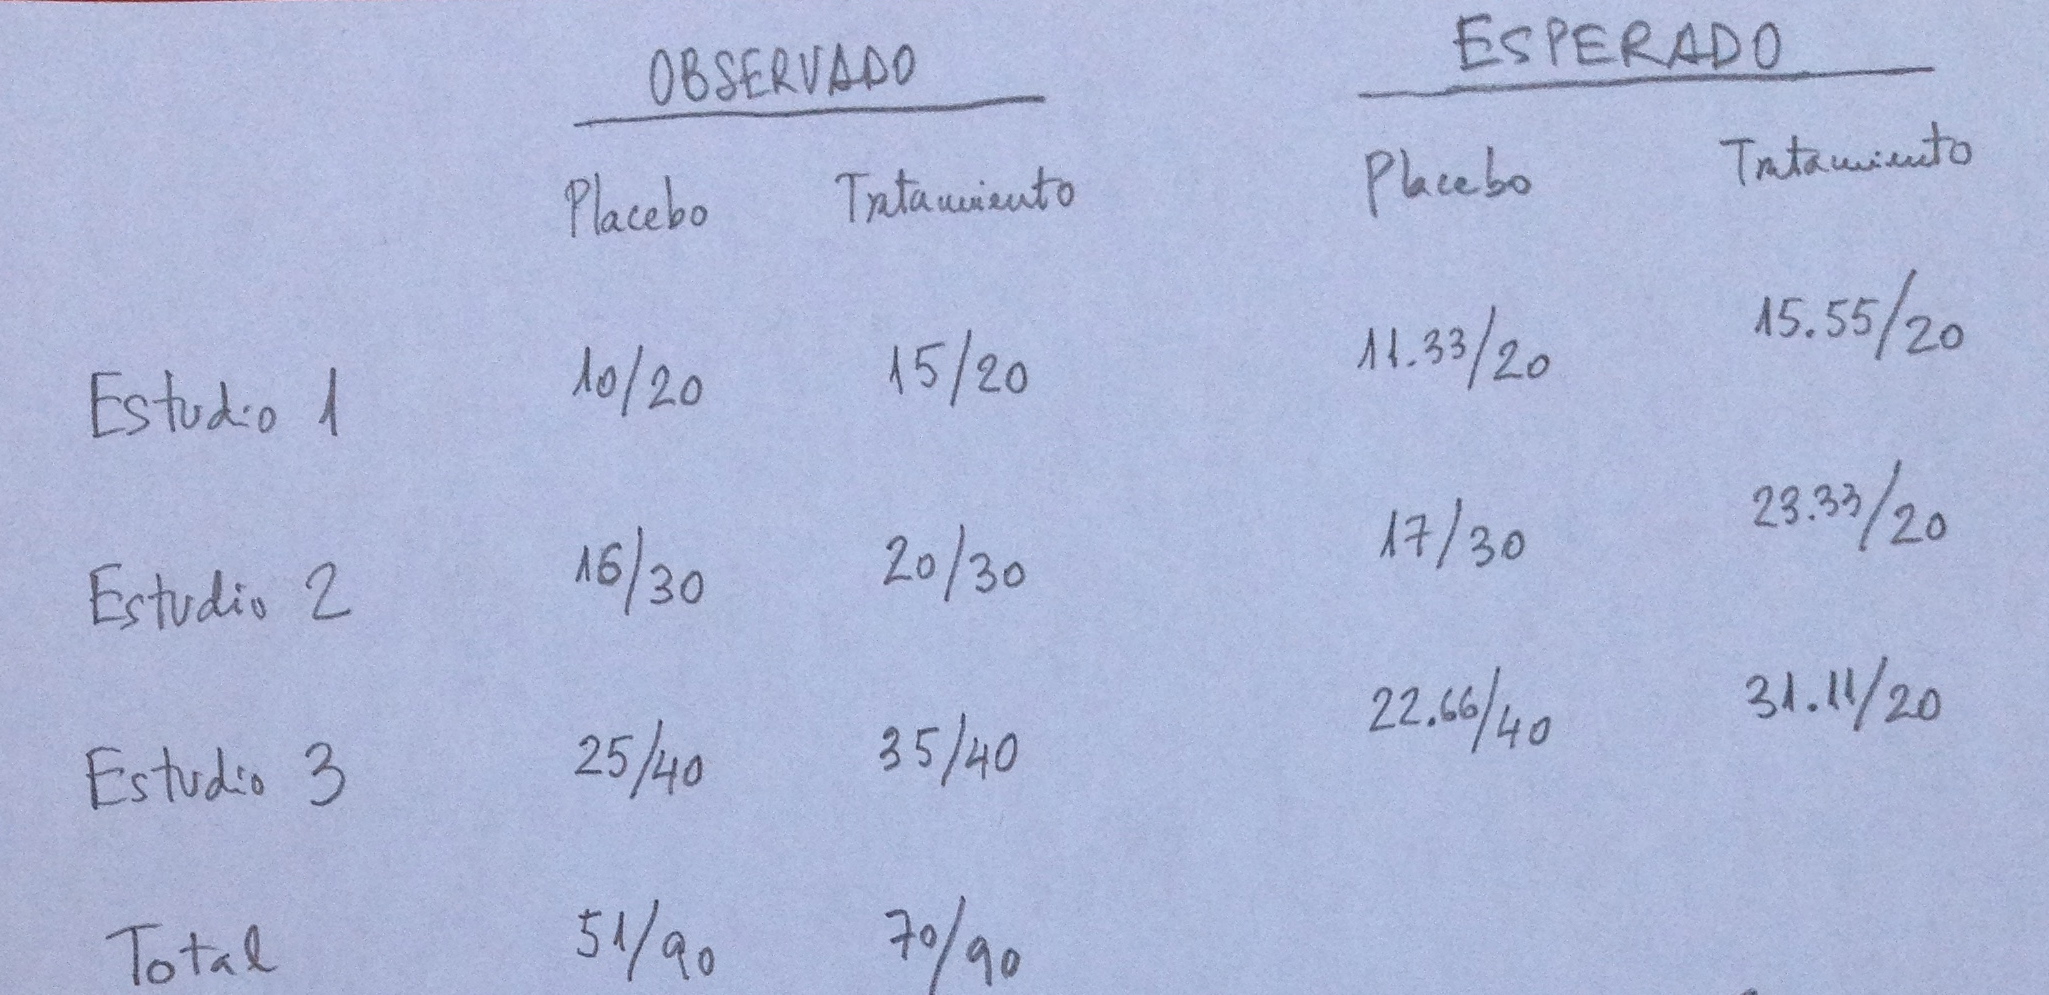 OBSERVADO ESPERADO
Placebo Tratamiento Placebo Tratamiento
Estudio 1 10/20 15/20 11.33/20 15.55/20
Estudio 2 16/30 20/30 17/30 23.33/20
Estudio 3 25/40 35/40 22.66/40 31.11/20
Total 51/90 70/90